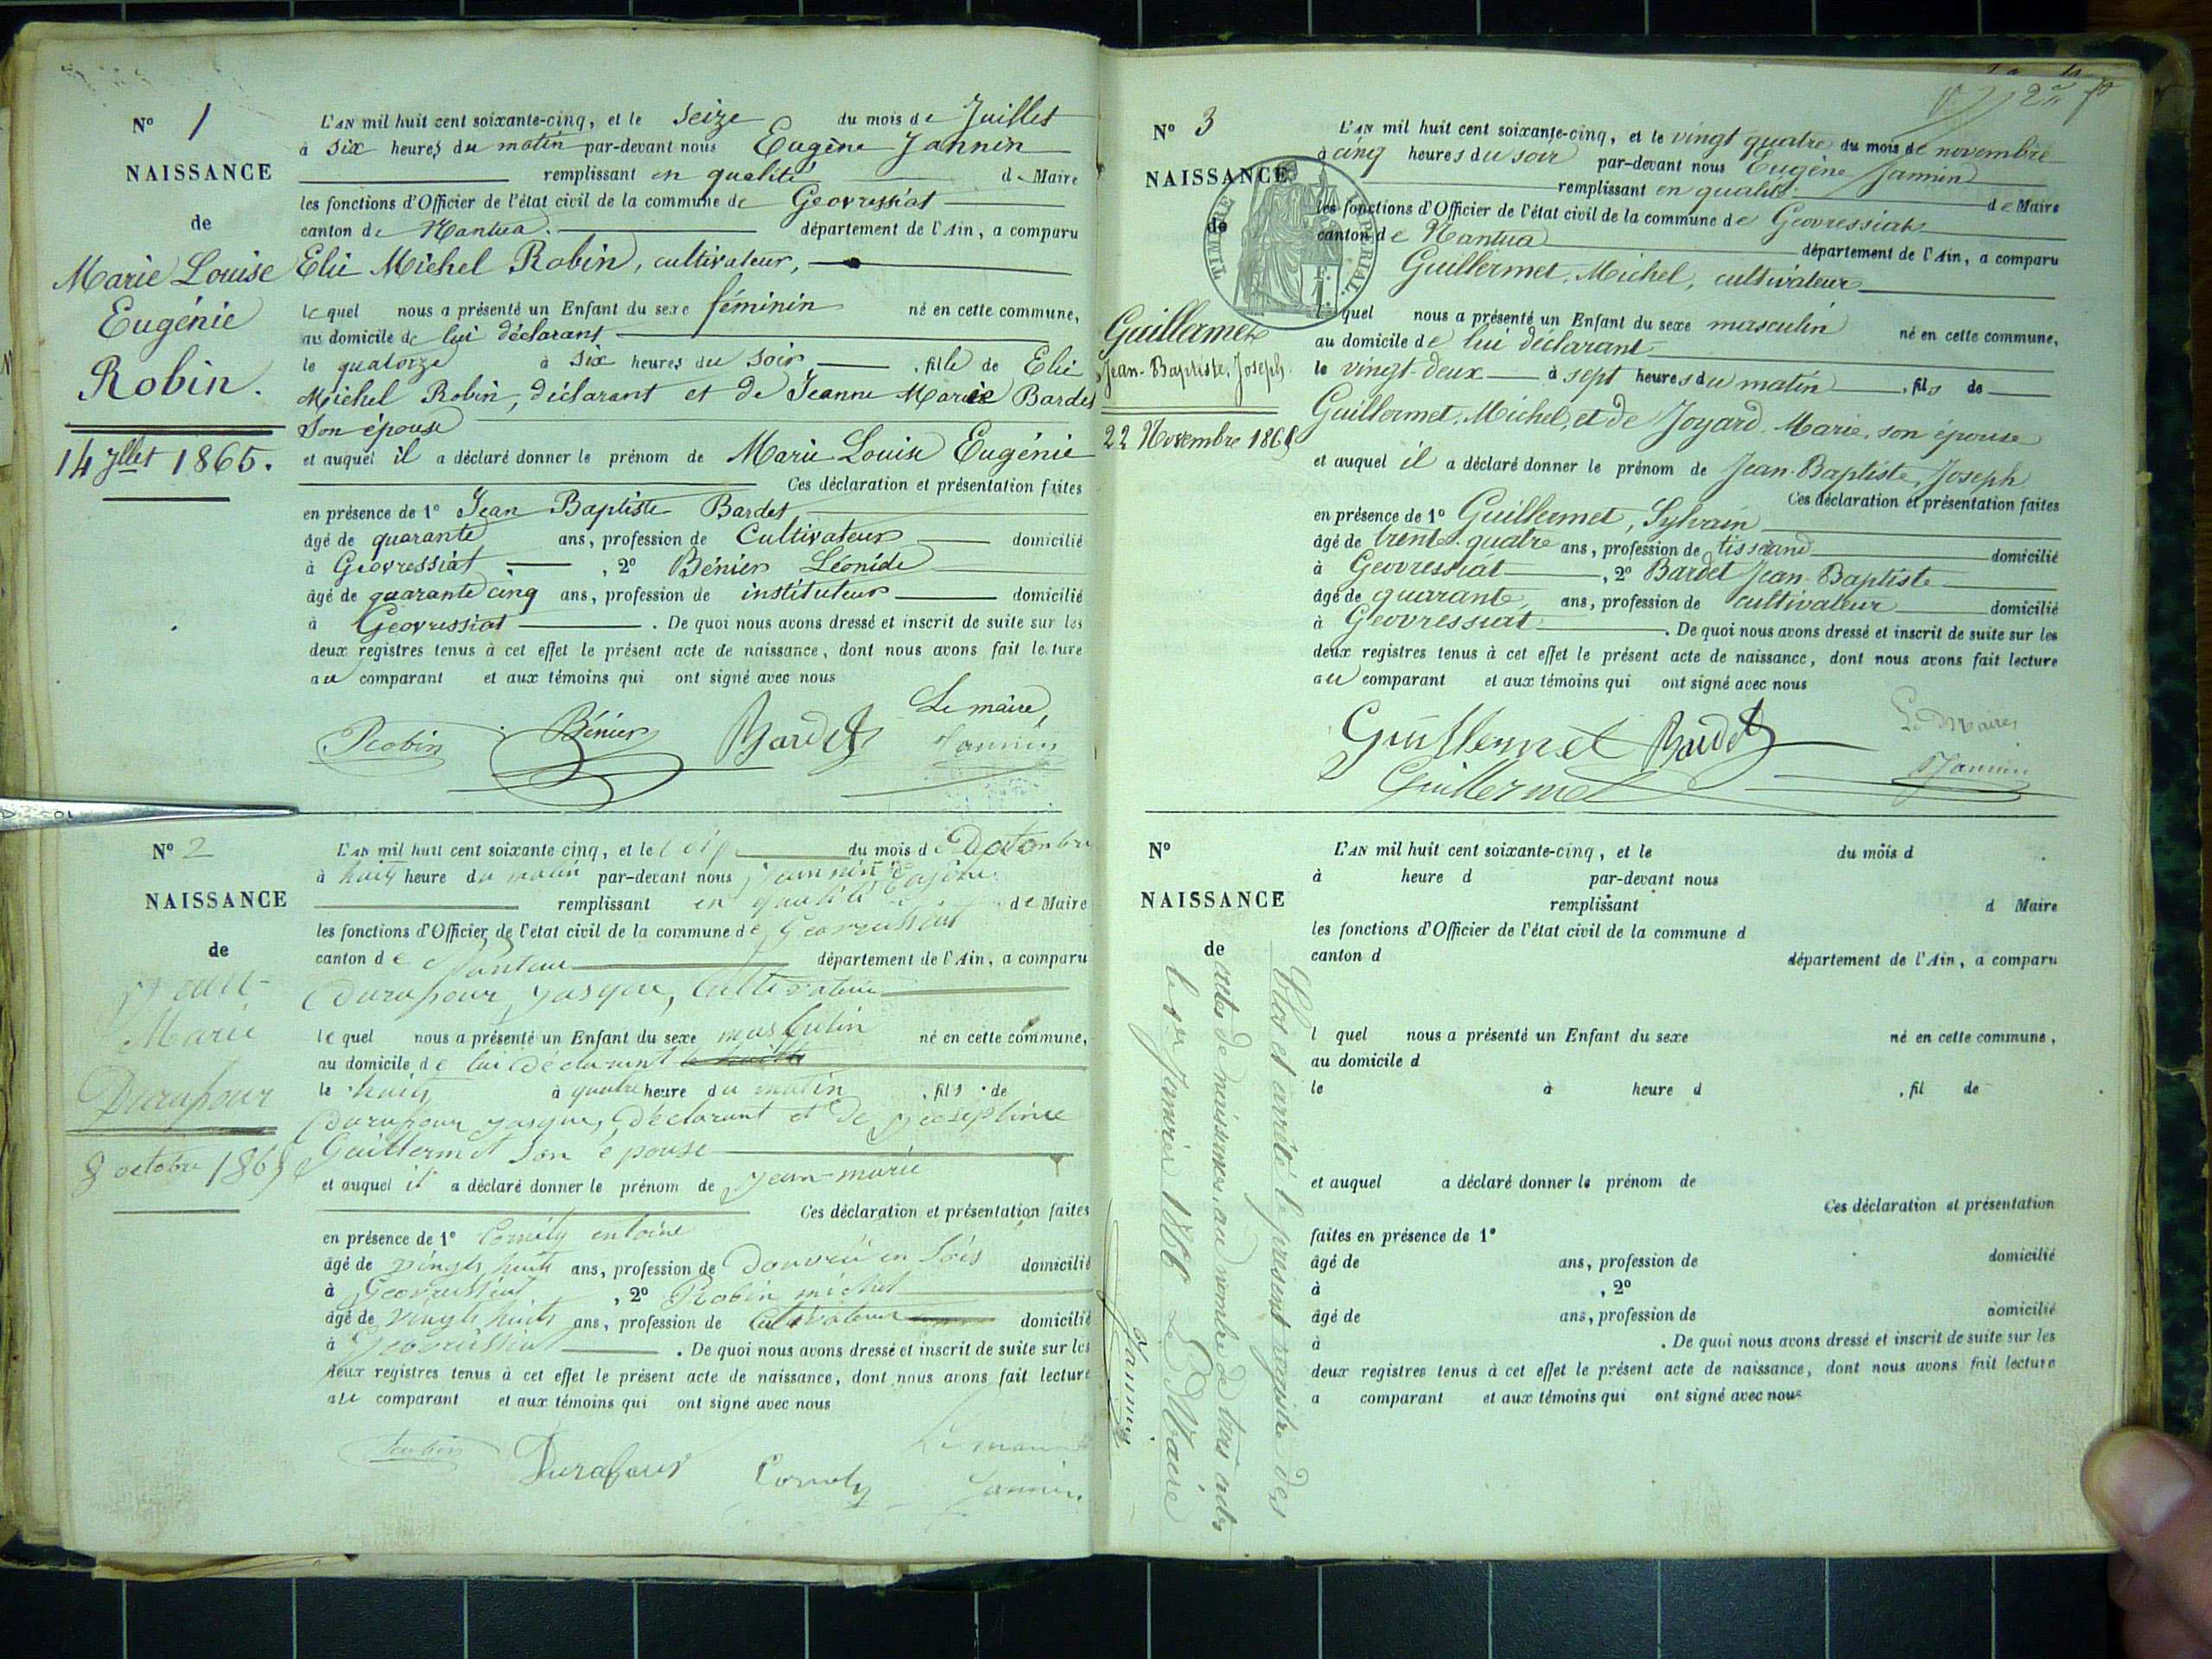 N° 1
NAISSANCE
de
Marie Louise
Eugénie
Robin.
14 Jllet 1865.
L'AN mil huit cent soixante-cinq, et le Seize du mois de Juillet
à Six heures du matin par-devant nous Eugène Jannin
remplissant en qualité de Maire
les fonctions d'Officier de l'état civil de la commune de Geovressiat
canton de Nantua. département de l'Ain, a comparu
Elie Michel Robin, cultivateur,
lequel nous a présenté un Enfant du sexe féminin né en cette commune,
au domicile de lui déclarant
le quatorze à Six heures du Soir , fille de Elie
Michel Robin, déclarant et de Jeanne Marie Bardet
Son épouse
et auquel il a déclaré donner le prénom de Marie Louise Eugénie
Ces déclaration et présentation faites
en présence de 1° Jean Baptiste Bardet
âgé de quarante ans, profession de Cultivateur domicilié
à Geovressiat , 2° Bénier Léonide
âgé de quarante cinq ans, profession de instituteur domicilié
à Geovressiat . De quoi nous avons dressé et inscrit de suite sur les
deux registres tenus à cet effet le présent acte de naissance, dont nous avons fait lecture
au comparant et aux témoins qui ont signé avec nous
Le maire,
Robin Bénier Bardet Jannin
N° 2
NAISSANCE
de
Jean-
Marie
Durafour
8 octobre 1865
L'AN mil huit cent soixante cinq, et le du mois d
à huit heure du matin par-devant nous jannin
remplissant en qualité de Maire
les fonctions d'Officier de l'état civil de la commune de Geovressiat
canton de Nantua département de l'Ain, a comparu
Durafour jasque, Cultivateur
lequel nous a présenté un Enfant du sexe masculin né en cette commune,
au domicile de lui déclarant
le huit à quatre heure du matin , fils de
Durafour jasque, déclarant et de joseptine
Guillermet Son épouse
et auquel il a déclaré donner le prénom de jean-marie
Ces déclaration et présentation faites
en présence de 1° Comély entoine
âgé de vingt huit ans, profession de en domicilié
à Geovressiat , 2° Robin michel
âgé de vingt huit ans, profession de Cultivateur domicilié
à Geovressiat . De quoi nous avons dressé et inscrit de suite sur les
deux registres tenus à cet effet le présent acte de naissance, dont nous avons fait lecture
au comparant et aux témoins qui ont signé avec nous
Le maire
Robin Durafour Comely Jannin
N° 3
NAISSANCE
de
TIMBRE IMPERIAL
Guillermet
Jean-Baptiste, Joseph
22 Novembre 1865
L'AN mil huit cent soixante-cinq, et le vingt quatre du mois de novembre
à cinq heures du soir par-devant nous Eugène Jannin
remplissant en qualité de Maire
les fonctions d'Officier de l'état civil de la commune de Geovressiat
canton de Nantua département de l'Ain, a comparu
Guillermet, Michel, cultivateur
lequel nous a présenté un Enfant du sexe masculin né en cette commune,
au domicile de lui déclarant
le vingt-deux à sept heures du matin , fils de
Guillermet, Michel, et de Joyard Marie, son épouse
et auquel il a déclaré donner le prénom de Jean-Baptiste, Joseph
Ces déclaration et présentation faites
en présence de 1° Guillermet, Sylvain
âgé de trente-quatre ans, profession de tisserand domicilié
à Geovressiat , 2° Bardet Jean-Baptiste
âgé de quarante ans, profession de cultivateur domicilié
à Geovressiat . De quoi nous avons dressé et inscrit de suite sur les
deux registres tenus à cet effet le présent acte de naissance, dont nous avons fait lecture
au comparant et aux témoins qui ont signé avec nous
Le Maire
Guillermet Bardet
Guillermet
Jannin
N°
NAISSANCE
de
L'AN mil huit cent soixante-cinq, et le du mois d
à heure d par-devant nous
remplissant d Maire
les fonctions d'Officier de l'état civil de la commune d
canton d département de l'Ain, a comparu
l quel nous a présenté un Enfant du sexe né en cette commune,
au domicile d
le à heure d , fil de
et auquel a déclaré donner le prénom de
Ces déclaration et présentation
faites en présence de 1°
âgé de ans, profession de domicilié
à , 2°
âgé de ans, profession de domicilié
à . De quoi nous avons dressé et inscrit de suite sur les
deux registres tenus à cet effet le présent acte de naissance, dont nous avons fait lecture
a comparant et aux témoins qui ont signé avec nous
Clos et arrêté le présent registre des
actes de naissances au nombre de trois actes
le 1er Janvier 1866 Le Maire
Jannin